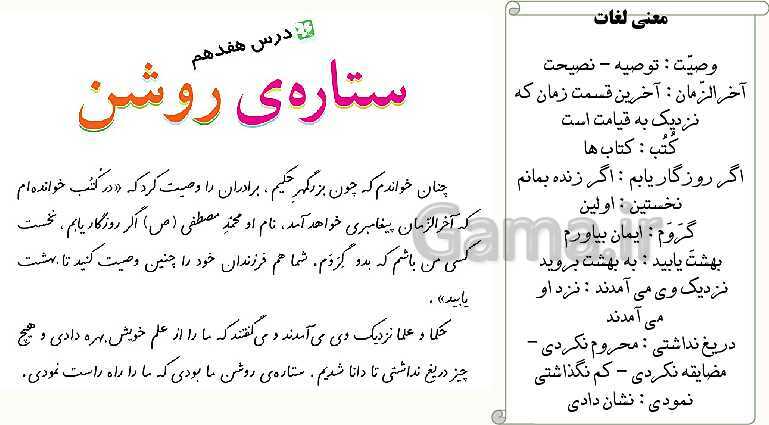 درس هفدهم
ستاره‌ی روشن
چنان خواندم که چون بزرگمهرِ حکیم، برادران را وصیت کرد که «در کُتُب خوانده‌ام
که آخرالزمان پیغامبری خواهد آمد، نام او محمّدِ مصطفی (ص) اگر روزگار یابم، نخست
کسی من باشم که بدو گِرَوَم. شما هم فرزندان خود را چنین وصیت کنید تا بهشت
یابید».
حُکما و علما نزدیک وی می‌آمدند و می‌گفتند که ما را از علم خویش بهره دادی و هیچ
چیز دریغ نداشتی تا دانا شدیم. ستاره‌ی روشن ما بودی که ما را راه راست نمودی.
معنی لغات
وصیّت : توصیه – نصیحت
آخرالزّمان : آخرین قسمت زمان که
نزدیک به قیامت است
کُتُب : کتاب ها
اگر روزگار یابم : اگر زنده بمانم
نخستین : اولین
گرَوَم : ایمان بیاورم
بهشتَ یابید : به بهشت بروید
نزدیک وی می آمدند : نزد او
می آمدند
دریغ نداشتی : محروم نکردی –
مضایقه نکردی – کم نگذاشتی
نمودی : نشان دادی
Gama.ir